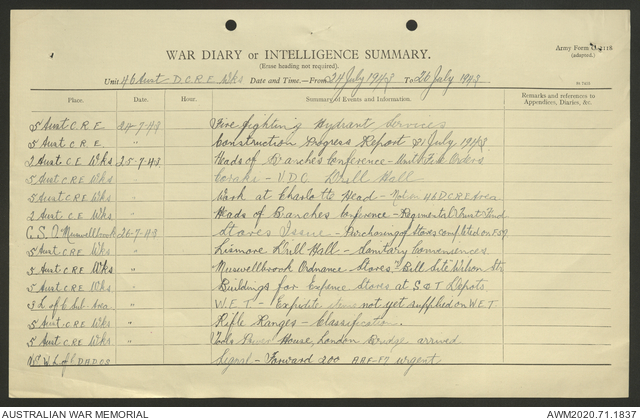 Army Form C.2118
(adapted.)
WAR DIARY or INTELLIGENCE SUMMARY.
(Erase heading not required).
Unit 46 Aust D.C.R.E. Wks Date and Time.—From 24 July 1943 To 26 July 1943
Place. Date. Hour. Summary of Events and Information. Remarks and references to Appendices, Diaries, &c.
5 Aust C.R.E 24-7-43 Fire fighting Hydrant Services
5 Aust C.R.E. " Construction Progress Report 21 July 1943
2 Aust C.E Wks 25-7-43 Heads of Branches Conference — Orders
5 Aust CRE Wks " V.D.C. Drill Hall
5 Aust C.R.E Wks " Work at Charlotte Head — Not in 4 A D.C.R.E Area
2 Aust C.E Wks " Heads of Branches Conference — Regimental Trust Fund
Muswellbrook 26-7-43 Stores Issue — Purchasing of Stores
5 Aust C.R.E Wks " Lismore Drill Hall — Sanitary Conveniences
5 Aust C.R.E Wks " Muswellbrook Ordnance Stores — Bill Site Wilson Str
5 Aust C.R.E Wks " Buildings for Expense Stores at S & T Depots
3 L of C Sub. Area " W.E.T — Expedite items not yet supplied on W.E.T
5 Aust C.R.E Wks " Rifle Ranges — Classification.
5 Aust C.R.E Wks " House, London Bridge arrived
Signal — Forward 200 AAF-F7 urgent
AUSTRALIAN WAR MEMORIAL
AWM2020.71.1837